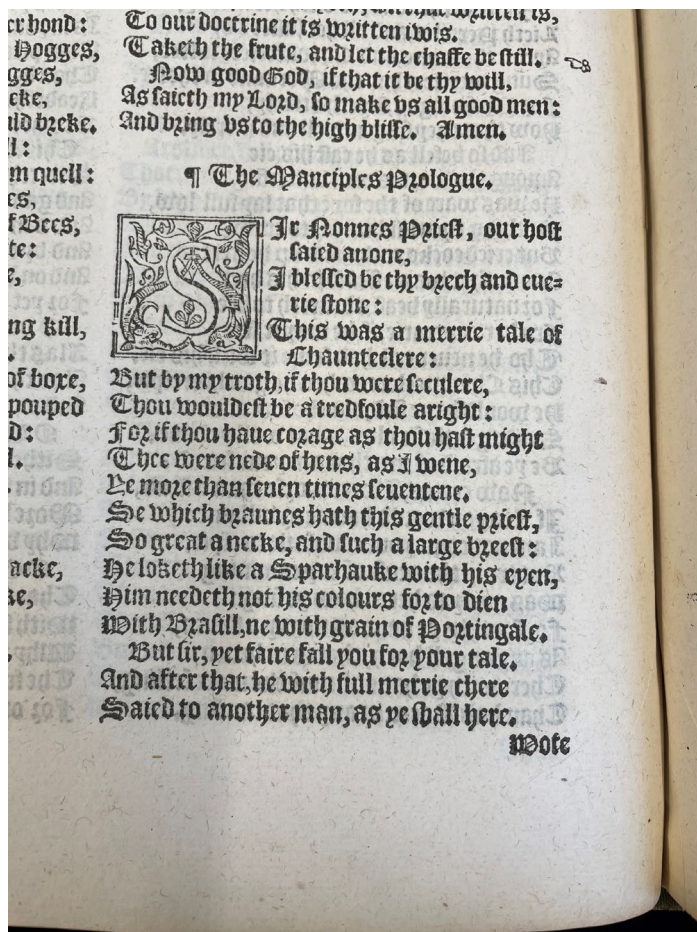 er hond:
Hogges,
gges,
cke,
uld breke.
ll:
m quell:
es,
f Bees,
te:
e,
ng kill,
.
of boxe,
pouped
d:
l.
.
acke,
ke,
written is,
To our doctrine it is written iwis.
Taketh the frute, and let the chaffe be still.
Now good God, if that it be thy will,
As saieth my Lord, so make vs all good men:
And bring vs to the high blisse. Amen.
¶ The Manciples Prologue.
SIr Nonnes Priest, our host
saied anone,
I blessed be thy brech and eue=
rie stone:
This was a merrie tale of
Chaunteclere:
But by my troth, if thou were seculere,
Thou wouldest be a tredfoule aright:
For if thou haue corage as thou hast might
Thee were nede of hens, as I wene,
Ye more than seuen times seuentene.
Se which braunes hath this gentle priest,
So great a necke, and such a large breest:
He loketh like a Sparhauke with his eyen,
Him needeth not his colours for to dien
With Brasill, ne with grain of Portingale.
But sir, yet faire fall you for your tale.
And after that, he with full merrie chere
Saied to another man, as ye shall here.
Wote